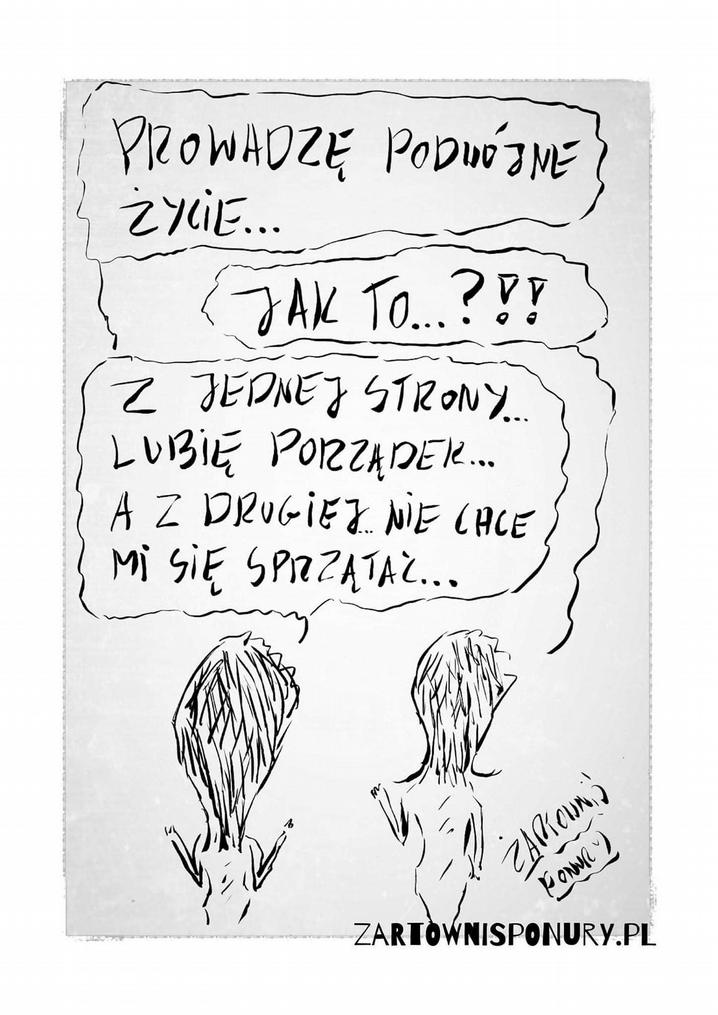 PROWADZĘ PODWÓJNE
ŻYCIE...
JAK TO...?!!
Z JEDNEJ STRONY...
LUBIĘ PORZĄDEK...
A Z DRUGIEJ... NIE CHCE
MI SIĘ SPRZĄTAĆ...
ŻARTOWNIŚ
PONURY
ZARTOWNISPONURY.PL